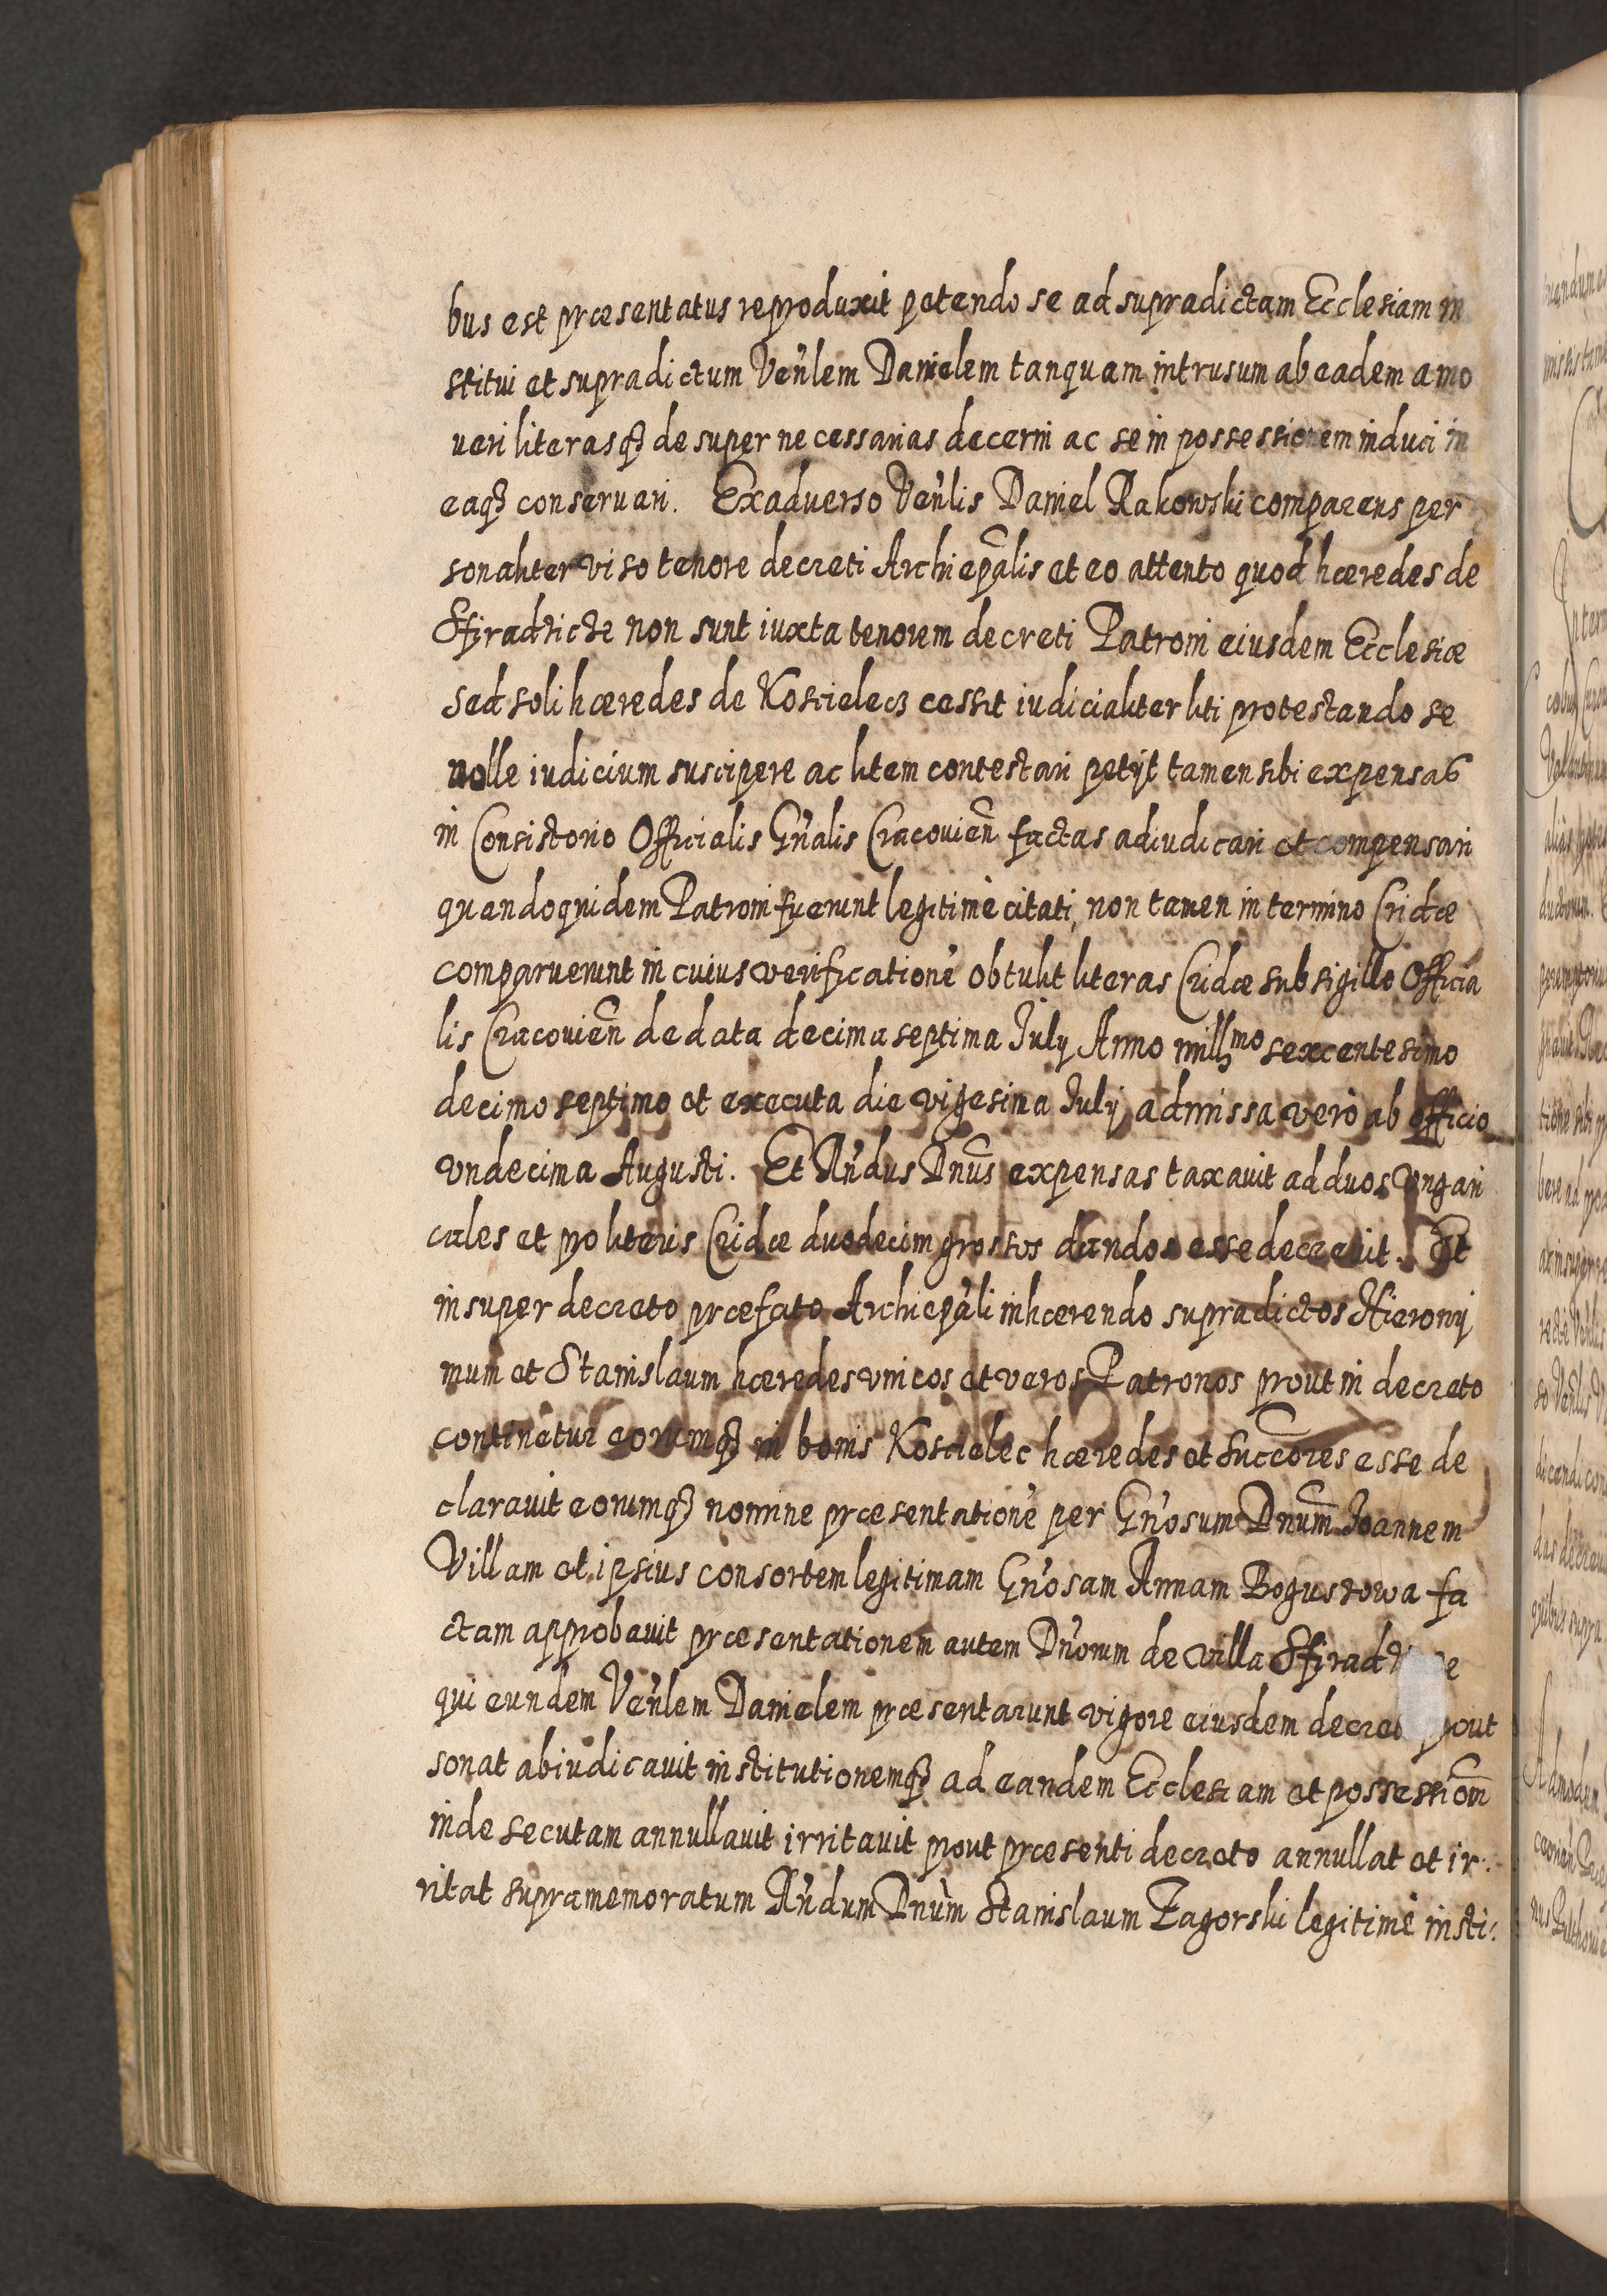 bus est præsentatus reproduxit petendo se ad supradictam Ecclesiam in
stitui et supradictum Ven̄lem Danielem tanquam intrusum ab eadem amo
veri literasqꝫ de super necessarias decerni ac se in possessionem induci in
eaqꝫ conseruari. Ex aduerso Ven̄lis Daniel Rakowski comparens per
sonaliter viso tenore decreti Archiep̄alis et eo attento quod hæredes de
non sunt iuxta tenorem decreti Patroni eiusdem Ecclesiæ
sed soli hæredes de Koscielecz cessit iudicialiter liti protestando se
nolle iudicium suscipere ac litem contestari petijt tamen sibi expensas
in Consistorio Officialis Gn̄alis Cracouien̄ factas adiudicari et compensari
quandoquidem Patroni fuerunt legitimè citati, non tamen in termino Cridæ
comparuerunt in cuius verificationē obtulit literas Cridæ sub sigillo Officia
lis Cracouien̄ de data decima septima July Anno mill̄mo sexcentesimo
decimo septimo et executa die vigesima July admissa verò ab officio
vndecima Augusti. Et Rn̄dus Dnūs expensas taxauit ad duos vngari
cales et pro literis Cridæ duodecim grossos dandos esse decreuit. Et
insuper decreto præfato Archiep̄ali inhærendo supradictos Hierony
mum et Stanislaum hæredes vnicos et veros Patronos prout in decreto
continetur eorumqꝫ in bonis Koscielec hæredes et Succ̄ores esse de
clarauit eorumqꝫ nomine præsentationē per Gn̄osum Dnūm Joannem
Villam et ipsius consortem legitimam Gn̄osam Annam Bogustowa fa
ctam approbauit præsentationem autem Dn̄orum de villa
qui eundem Ven̄lem Danielem præsentarunt vigore eiusdem prout
sonat abiudicauit institutionemqꝫ ad eandem Ecclesiam et possession̄
inde secutam annullauit irritauit prout præsenti decreto annullat et ir:
ritat supra memoratum Rn̄dum Dnūm Stanislaum Zagorski legitimè insti: